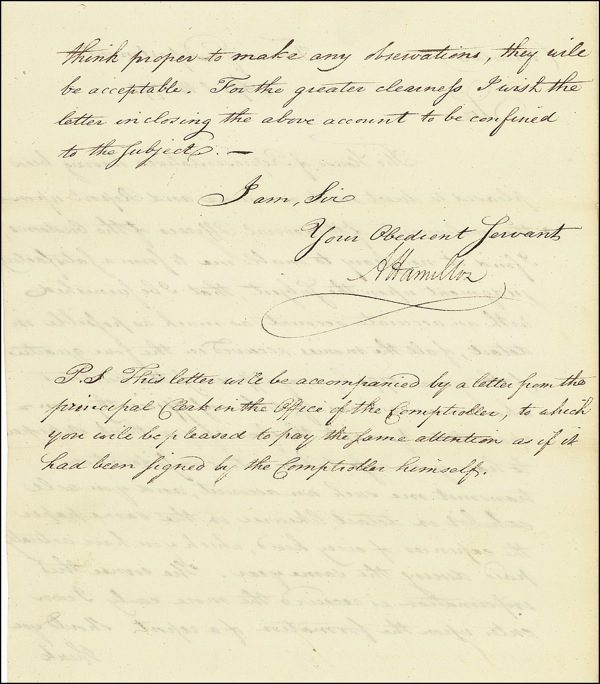 think proper to make any observations, they will
be acceptable. For the greater clearness I wish the
letter inclosing the above account to be confined
to the subject. —
I am, Sir
Your Obedient Servant
A Hamilton
P.S This letter will be accompanied by a letter from the
principal Clerk in the Office of the Comptroller, to which
you will be pleased to pay the same attention as if it
had been signed by the Comptroller himself.